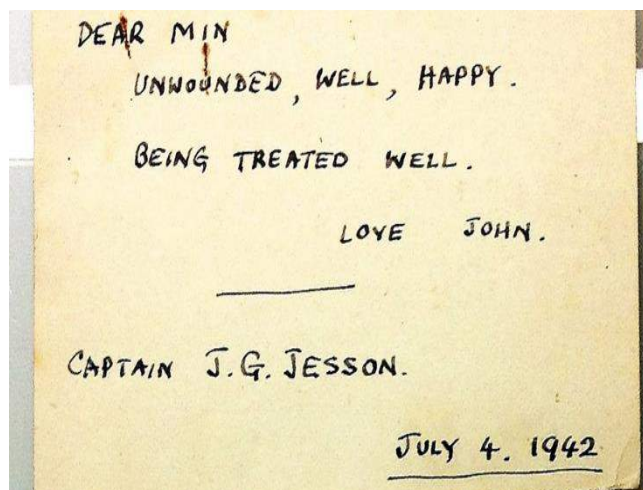 DEAR MIN
UNWOUNDED, WELL, HAPPY.
BEING TREATED WELL.
LOVE JOHN.
CAPTAIN J.G. JESSON.
JULY 4. 1942